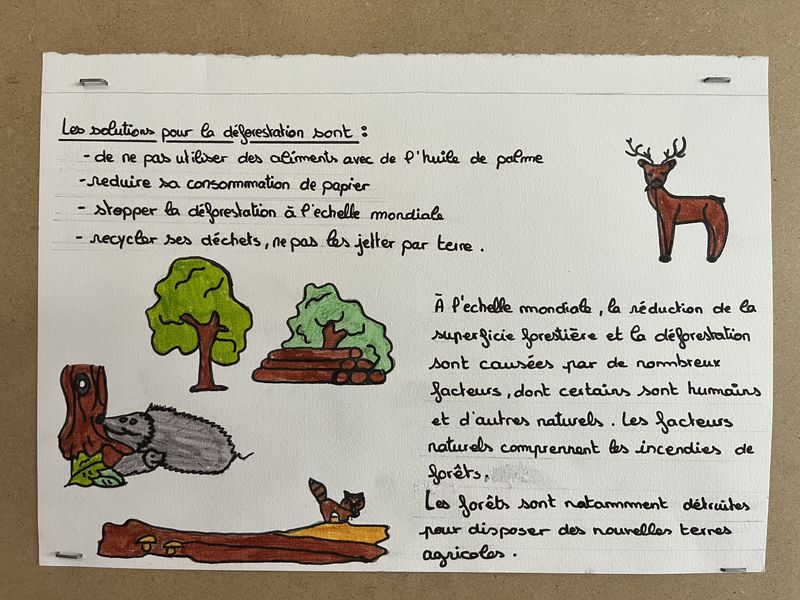 Les solutions pour la déforestation sont :
- de ne pas utiliser des aliments avec de l'huile de palme
- reduire sa consommation de papier
- stopper la déforestation à l'echelle mondiale
- recycler ses déchets, ne pas les jetter par terre.
À l'echelle mondiale, la réduction de la
superficie forestière et la déforestation
sont causées par de nombreux
facteurs, dont certains sont humains
et d'autres naturels. Les facteurs
naturels comprennent les incendies de
forêts.
Les forêts sont notamment détruites
pour disposer des nouvelles terres
agricoles.